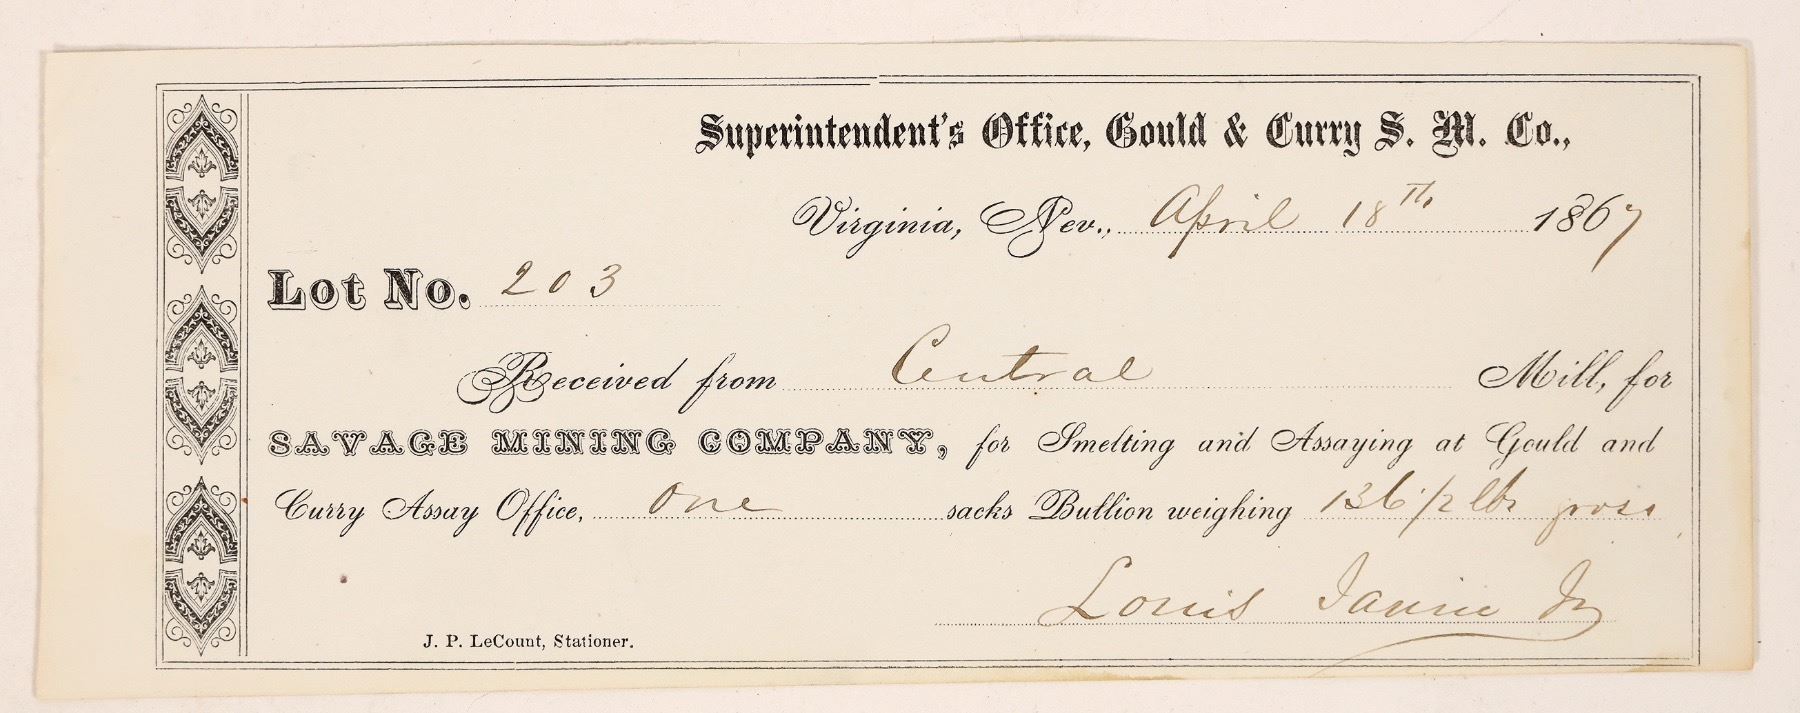 Superintendent's Office, Gould & Curry S. M. Co.,
Virginia, Nev., April 18th 1867
Lot No. 203
Received from Central Mill, for
SAVAGE MINING COMPANY, for Smelting and Assaying at Gould and
Curry Assay Office, One sacks Bullion weighing 136 1/2 lbs gross
Louis Janin Jr
J. P. LeCount, Stationer.